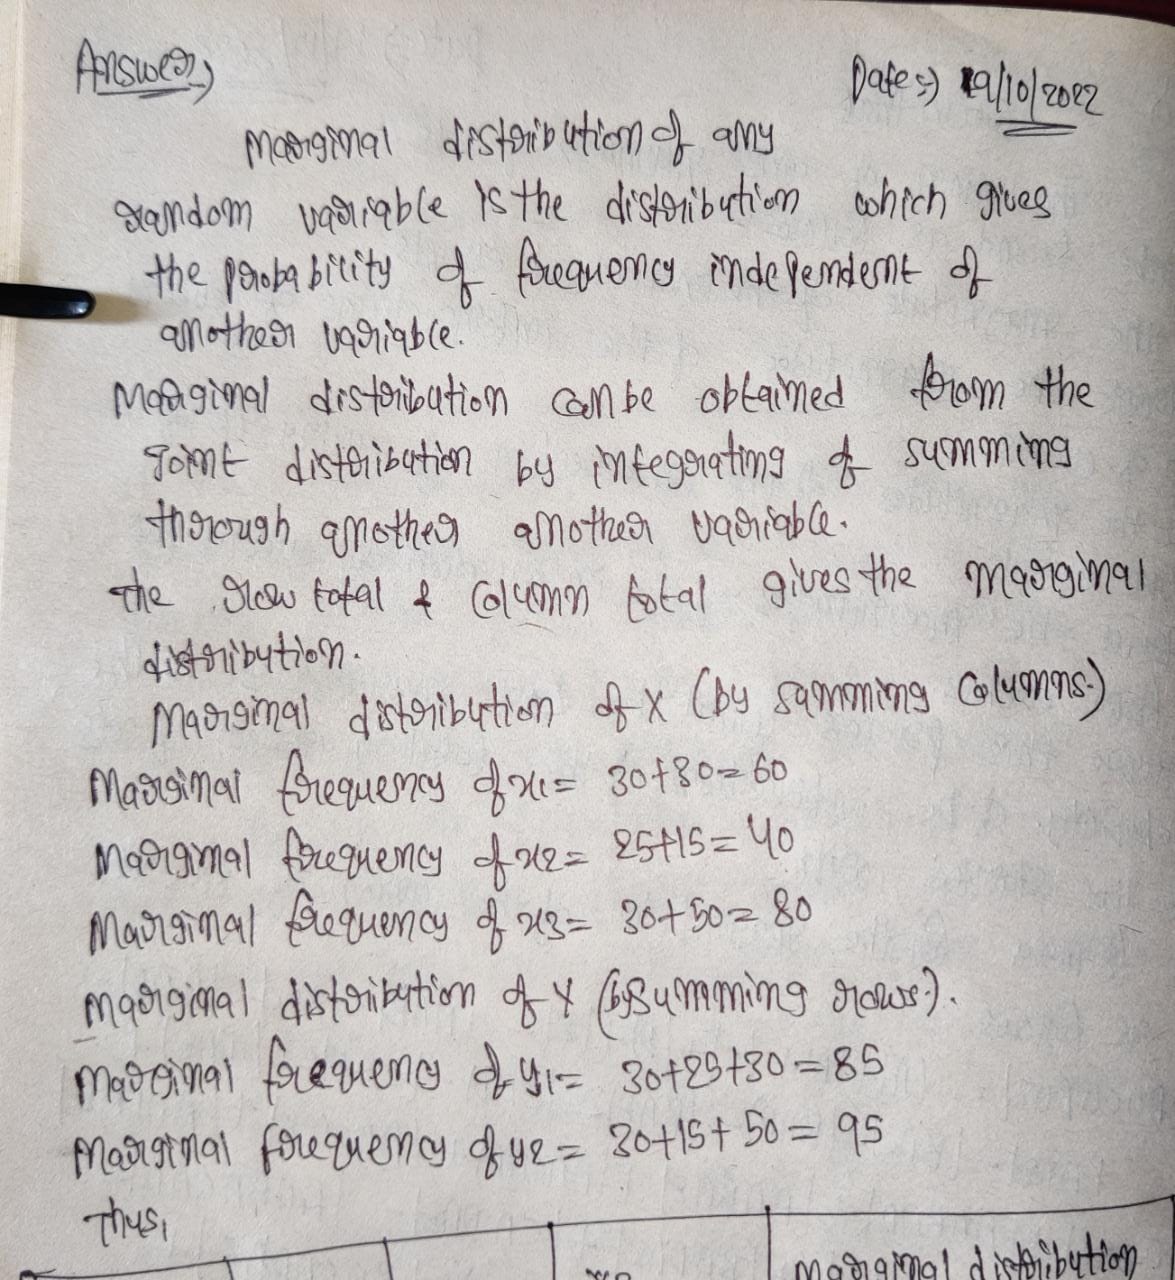 Answer:)
Date:) 19/10/2022
Marginal distribution of any
random variable is the distribution which gives
the probability of frequency independent of
another variable.
Marginal distribution can be obtained from the
joint distribution by integrating of summing
through another another variable.
the row total & column total gives the marginal
distribution.
Marginal distribution of X (by summing columns:)
Marginal frequency of x1= 30+30=60
Marginal frequency of x2= 25+15=40
Marginal frequency of x3= 30+50=80
Marginal distribution of Y (by summing rows:).
Marginal frequency of y1= 30+25+30=85
Marginal frequency of y2= 30+15+50=95
Thus,
Marginal distribution